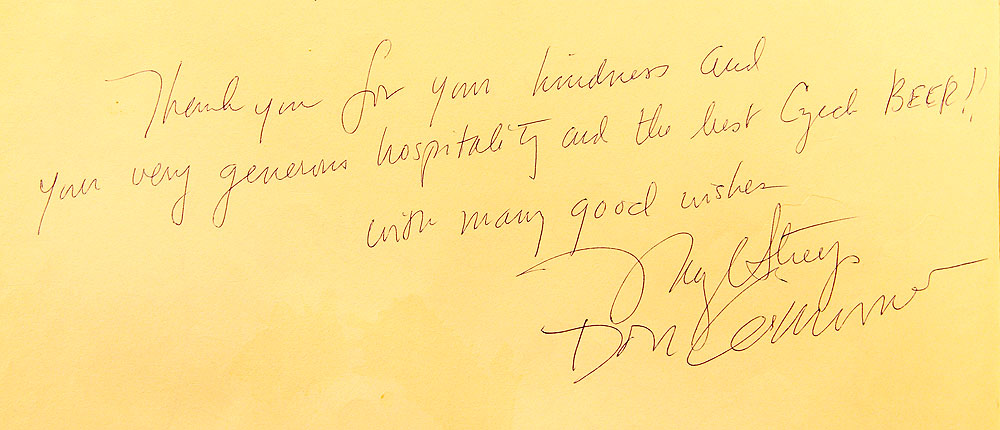 Thank you for your kindness and
your very generous hospitality and the best Czech BEER!!
with many good wishes
Meryl Streep
Don Gummer